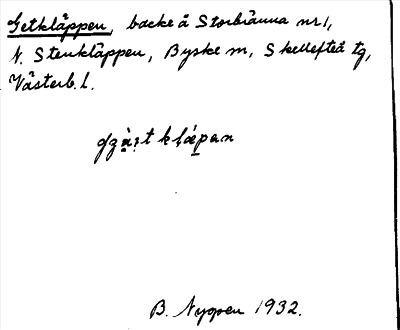 Getkläppen, backe å Storbränna nr 1,
N. Stenkläppen, Byske m, Skellefteå tg,
Västerb. l.
B. Nygren 1932.